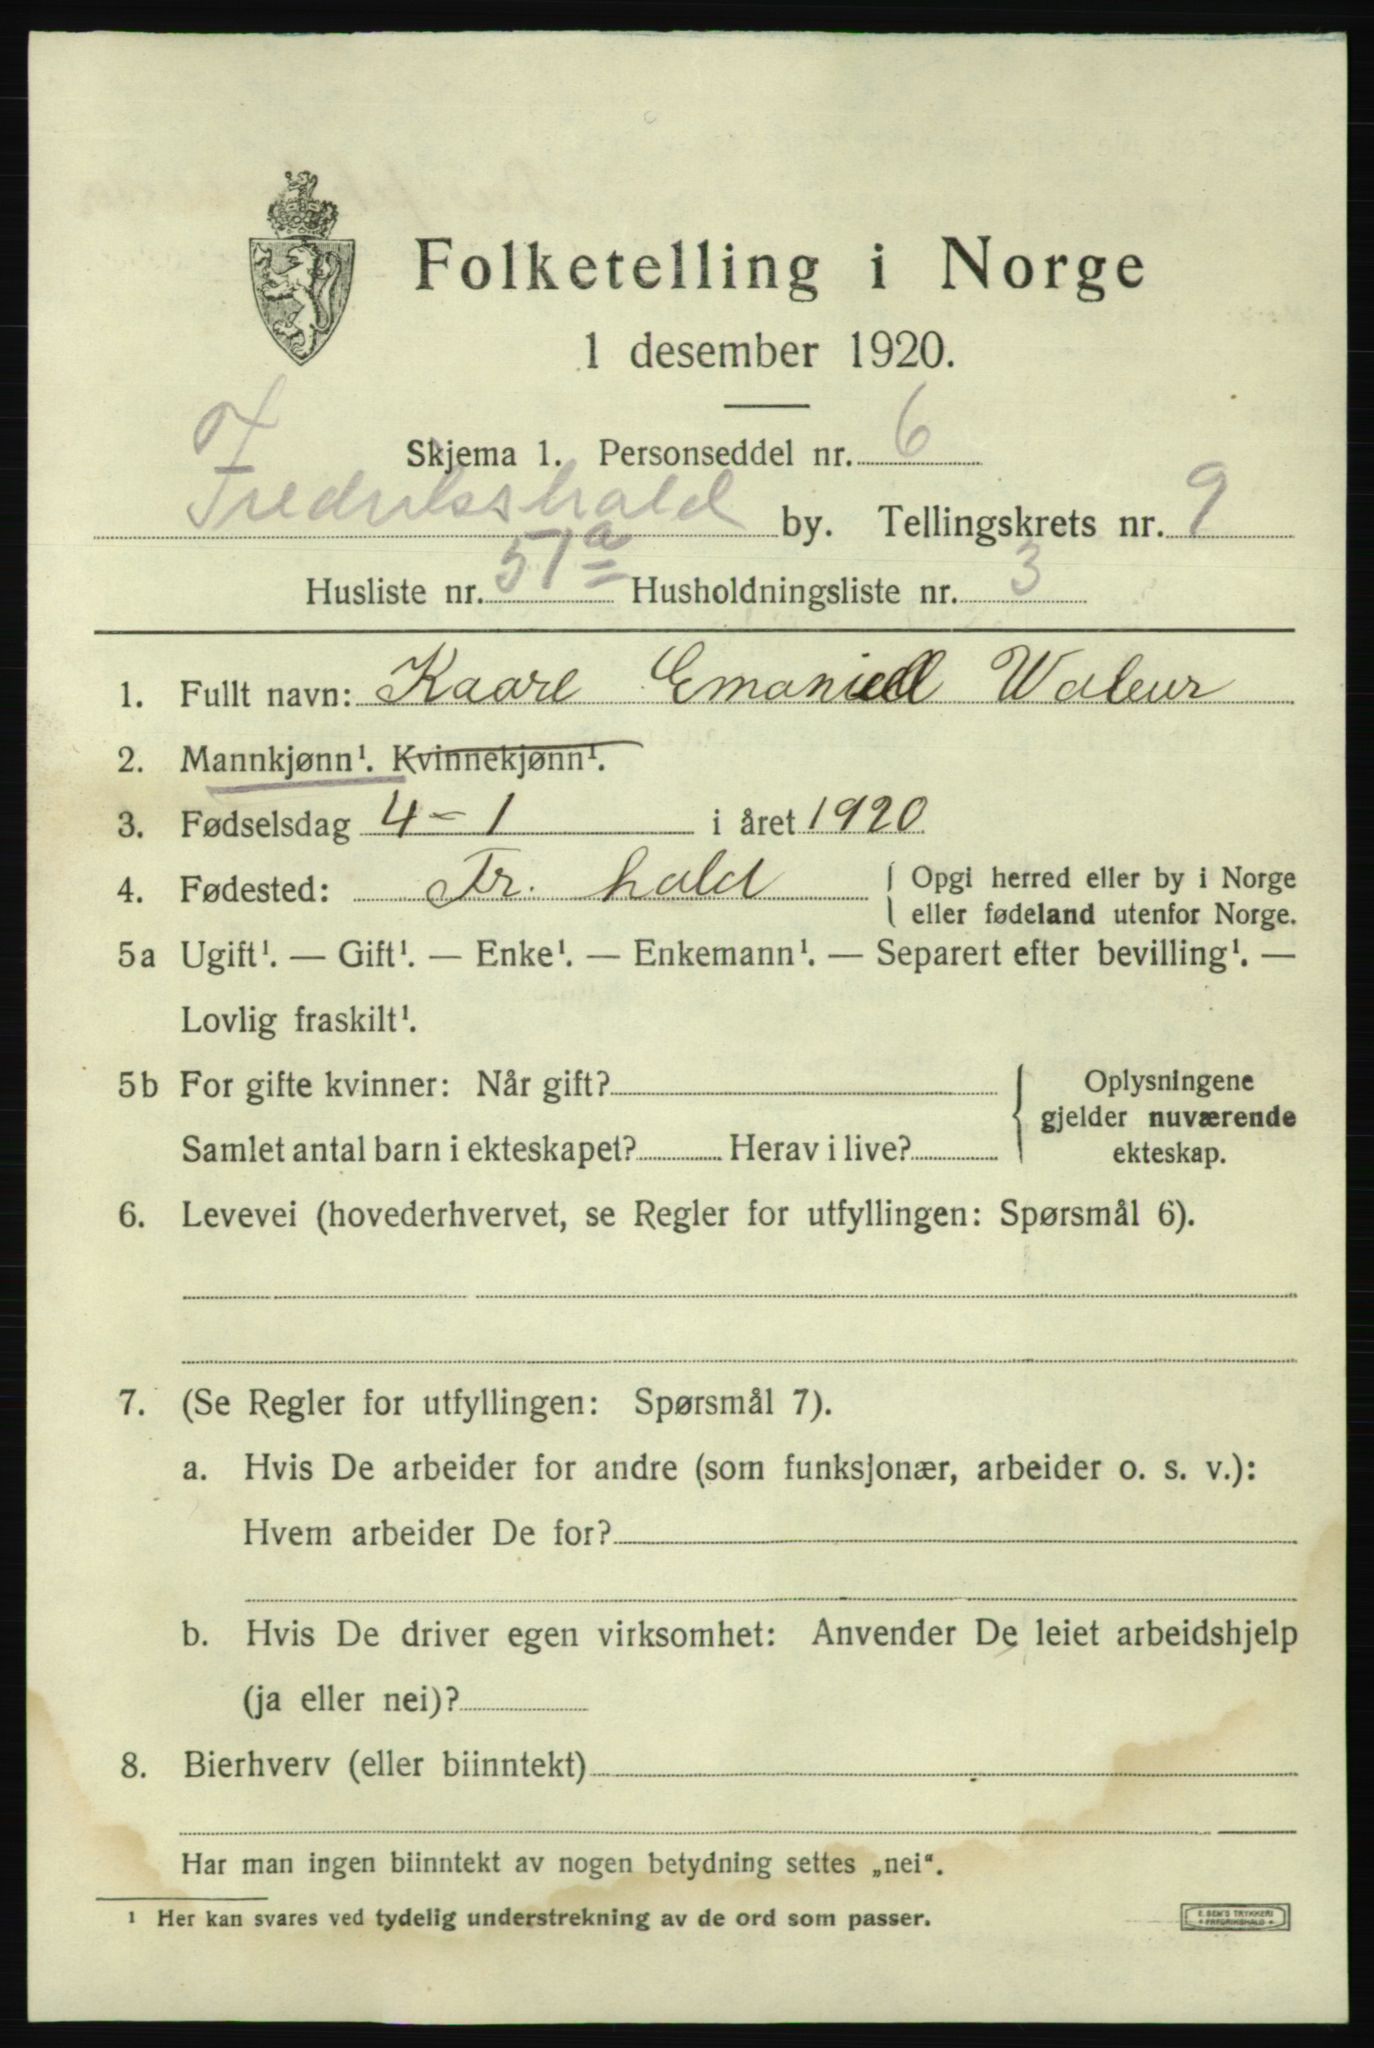 Folketelling i Norge
1 desember 1920.
Skjema 1. Personseddel nr. 6
Fredrikshald by. Tellingskrets nr. 9
Husliste nr. 51a Husholdningsliste nr. 3
1. Fullt navn: Kaare Emaniell Waleur
2. Mannkjønn¹. Kvinnekjønn¹.
3. Fødselsdag 4-1 i året 1920
4. Fødested: Fr. hald { Opgi herred eller by i Norge
eller fødeland utenfor Norge.
5a Ugift¹. — Gift¹. — Enke¹. — Enkemann¹. — Separert efter bevilling¹. —
Lovlig fraskilt¹.
5b For gifte kvinner: Når gift?
Samlet antal barn i ekteskapet? Herav i live?
Oplysningene
gjelder nuværende
ekteskap.
6. Levevei (hovederhvervet, se Regler for utfyllingen: Spørsmål 6).
7. (Se Regler for utfyllingen: Spørsmål 7).
a. Hvis De arbeider for andre (som funksjonær, arbeider o. s. v.):
Hvem arbeider De for?
b. Hvis De driver egen virksomhet: Anvender De leiet arbeidshjelp
(ja eller nei)?
8. Bierhverv (eller biinntekt)
Har man ingen biinntekt av nogen betydning settes „nei“.
¹ Her kan svares ved tydelig understrekning av de ord som passer.
E. SEM'S TRYKKERI
FREDRIKSHALD